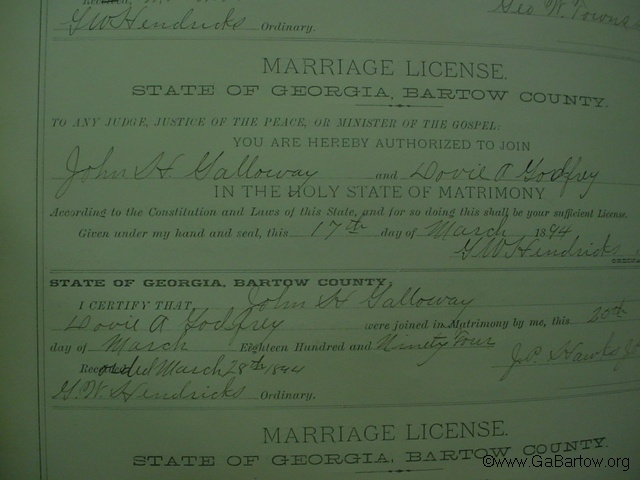 G W Hendricks Ordinary.
Geo W. Towns
MARRIAGE LICENSE.
STATE OF GEORGIA, BARTOW COUNTY.
TO ANY JUDGE, JUSTICE OF THE PEACE, OR MINISTER OF THE GOSPEL:
YOU ARE HEREBY AUTHORIZED TO JOIN
John H Galloway and Dovie A Godfrey
IN THE HOLY STATE OF MATRIMONY
According to the Constitution and Laws of this State, and for so doing this shall be your sufficient License.
Given under my hand and seal, this 17th day of March 1894
G W Hendricks
ORDINA
STATE OF GEORGIA, BARTOW COUNTY,
I CERTIFY THAT John H Galloway
Dovie A Godfrey were joined in Matrimony by me, this 20th
day of March Eighteen Hundred and Ninety Four
J.P. Hawks
Recorded March 28th 1894
G.W. Hendricks Ordinary.
MARRIAGE LICENSE.
STATE OF GEORGIA, BARTOW COUNTY.
©www.GaBartow.org